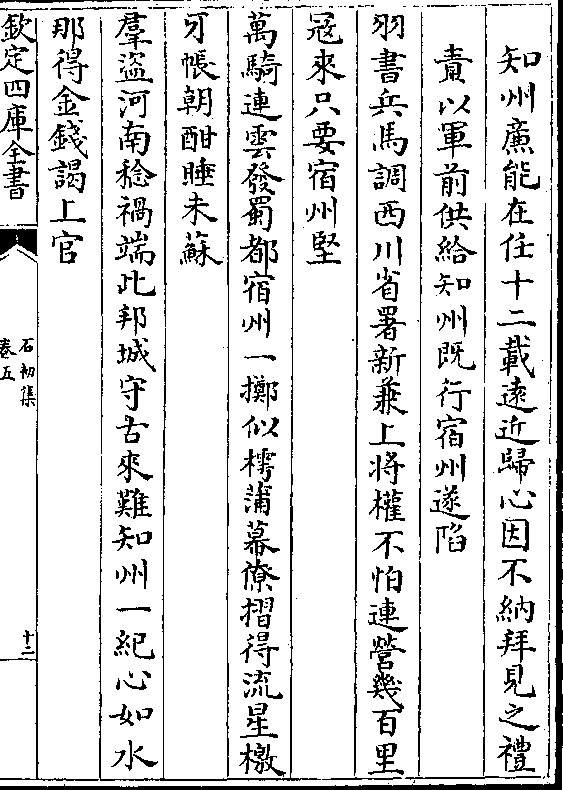 知州廉能在任十二載遠近歸心因不納拜見之禮
責以軍前供給知州既行宿州遂陷
羽書兵馬調西川省署新兼上將權不怕連營幾百里
冦來只要宿州堅
萬騎連雲發蜀都宿州一擲似樗蒲幕僚摺得流星檄
牙帳朝酣睡未蘇
羣盗河南稔禍端此邦城守古來難知州一紀心如水
那得金錢謁上官
欽定四庫全書
石初集
卷五
十二